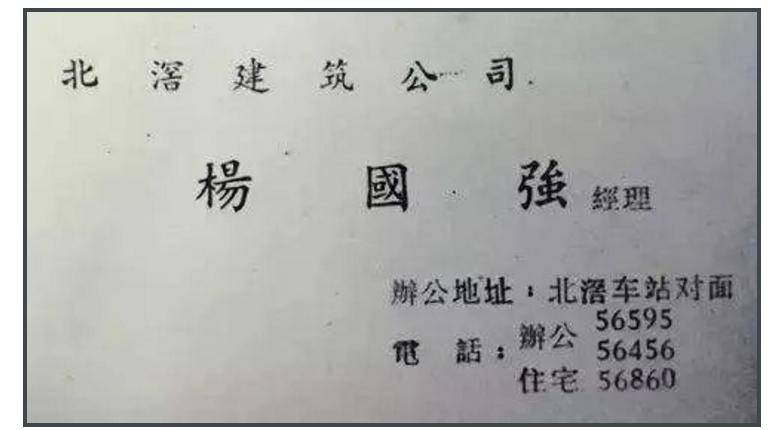 北滘建筑公司
楊國強 經理
辦公地址：北滘车站对面
電話：辦公 56595
56456
住宅 56860